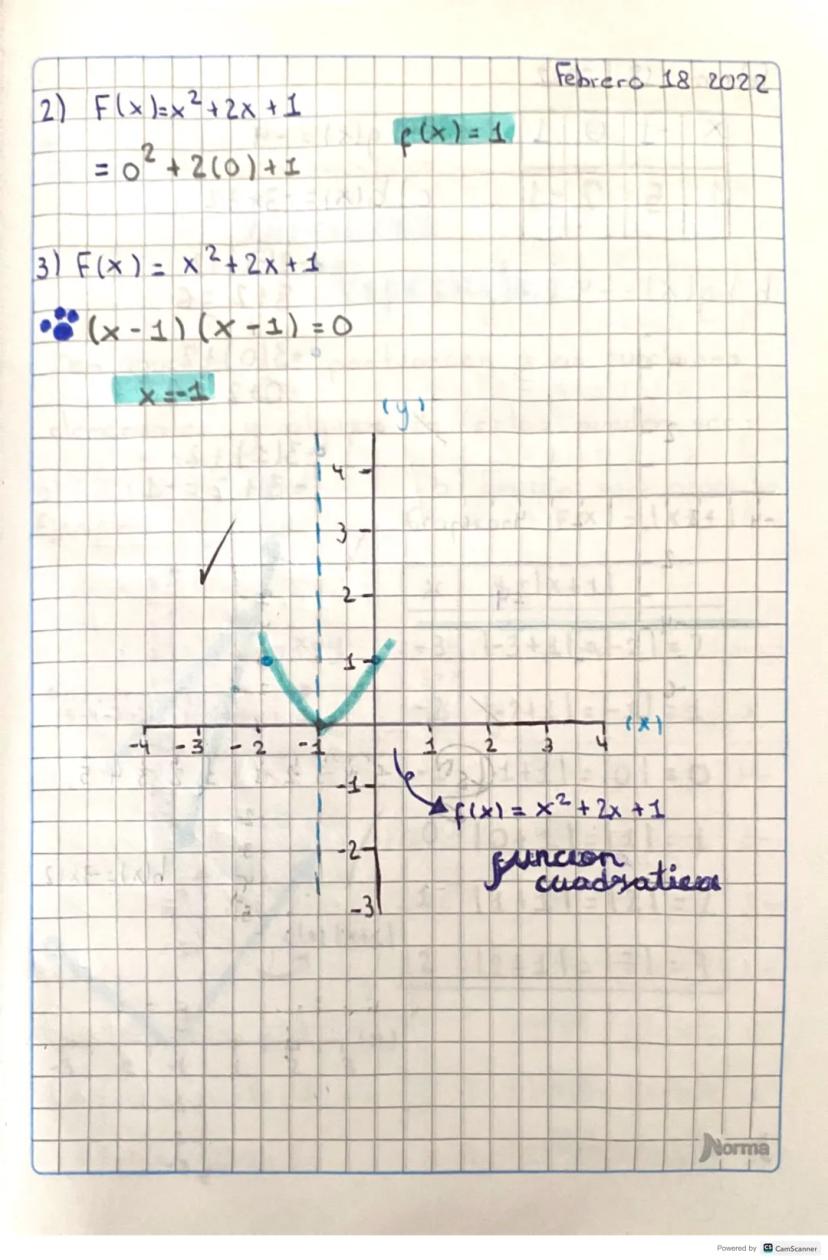 Febrero 18 2022
2) F(x)=x²+2x+1
f(x)=1
= 0²+2(0)+1
3) F(x) = x²+2x+1
(x-1)(x-1)=0
x=-1
(y)
4
3
2
1
-4 -3 -2 -1 1 2 3 4 (x)
-1
f(x) = x²+2x+1
-2
funcion
cuadratica
-3
Norma
Powered by CS CamScanner